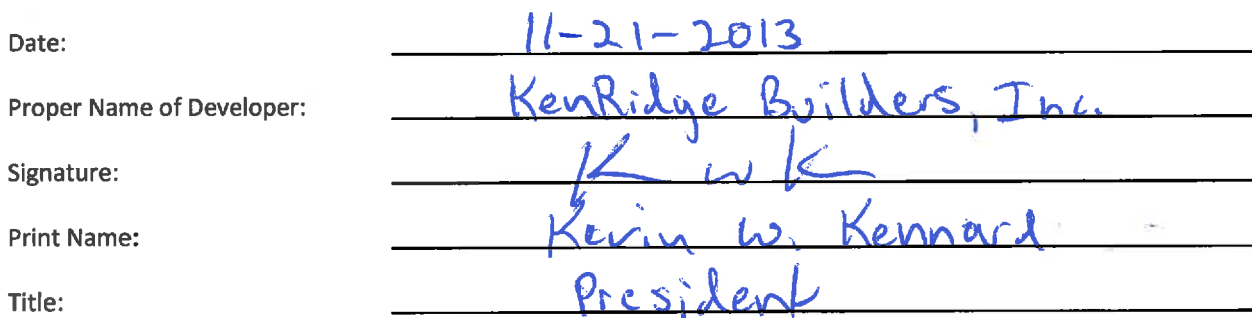 Date: 11-21-2013
Proper Name of Developer: KenRidge Builders, Inc.
Signature: K W K
Print Name: Kevin W. Kennard
Title: President